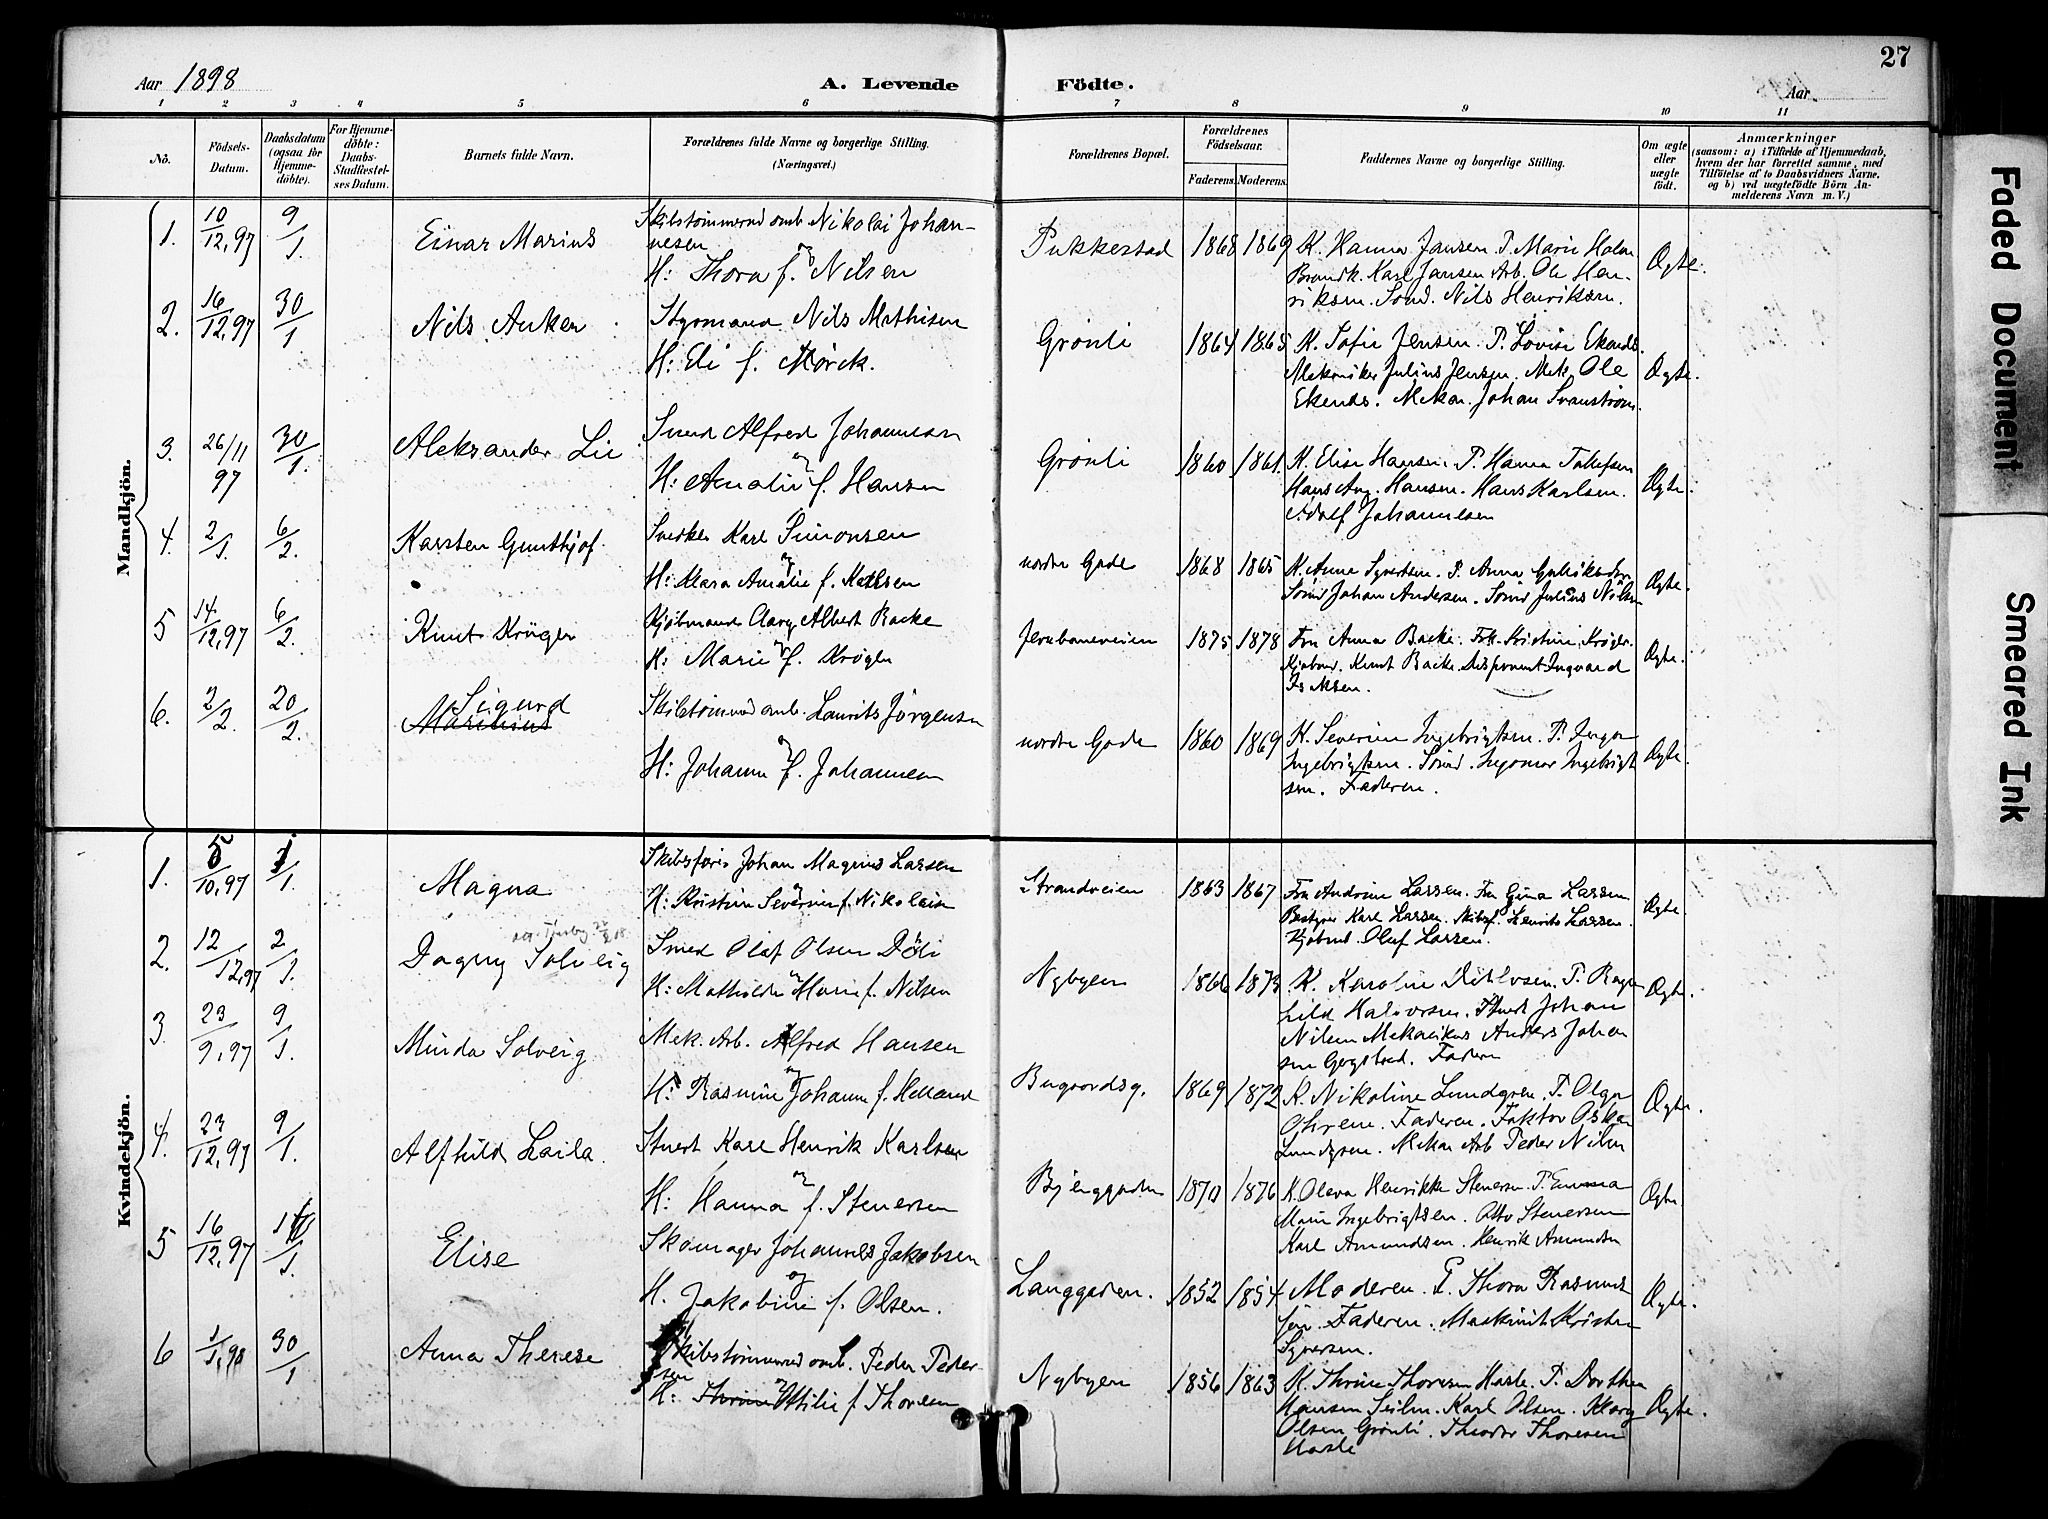 27
Aar 1898
A. Levende Födte.
Aar
1 2 3 4 5 6 7 8 9 10 11
No.
Födsels-Datum.
Daabsdatum (ogsaa for Hjemme-döbte).
For Hjemme-döbte: Daabs-Stadfæstel-ses Datum.
Barnets fulde Navn.
Forældrenes fulde Navne og borgerlige Stilling. (Næringsvei.)
Forældrenes Bopæl.
Forældrenes Födselsaar.
Faderens. Moderens.
Faddernes Navne og borgerlige Stilling.
Om ægte eller uægte födt.
Anmærkninger
(saasom: a) i Tilfælde af Hjemmedaab, hvem der har forrettet samme, med Tilföielse af to Daabsvidners Navne, og b) ved uægtefödte Börn An-melderens Navn m. V.)
Mandkjön.
1. 10/12,97 9/1. Einar Marius
Skibstømmermd arb Nikolai Johan-
nesen
og
H: Thora f. Nilsen
Pukkestad 1868 1869
K. Hanna Jansen P. Marie Holm
Brandk. Karl Jansen Arb. Ole Hen-
riksen. Sømd. Nils Henriksen.
Ægte.
2. 16/12,97 30/1 Nils Anker
Styrmand Nils Mathisen
H: Eli f. Mørck.
Grønli 1864 1865
K. Sofie Jensen P. Lovise Ekends.
Mekaniker Julius Jensen. Mek. Ole
Ekends. Mekan. Johan Svanstrøm.
Ægte.
3. 26/11 97 30/1. Aleksander Lie
Smed Alfred Johannesen
og
H: Amalie f. Hansen
Grønli 1860 1861
K. Elise Hansen. P. Hanna Tollefsen
Hans Aug. Hansen. Hans Karlsen.
Adolf Johannesen
Ægte.
4. 2/1. 6/2. Karsten Gunthjof.
Snedker Karl Simonsen
og
H: Klara Amalie f. Karlsen
nordre Gade 1868 1865
K. Anna Syvertsen. P. Anna
Sømd Johan Andersen. Sømd Julius Nilsen
Ægte.
5 14/12,97 6/2. Knut Krøger
Kjøbmand Clary Albert Backe
og
H: Marie f. Krøger
Jernbaneveien 1875 1878
Fru Anna Backe. Frk. Kristine Krøger.
Kjøbmd. Knut Backe. Disponent Ingvard
Isaksen.
Ægte.
6. 2/2. 20/2. Sigurd
Marthinus
Skibstømmermd arb. Laurits Jørgensen
og
H: Johanne f. Johannesen
nordre Gade 1860 1869
K. Severine Ingebrigtsen. P. Inga
Ingebrigtsen. Sømd. Ingomar Ingebrigt
sen. Faderen.
Ægte.
Kvindekjön.
1. 5/10,97 1/1. Magna
Skibsfører Johan Magnus Larsen
og
H: Kristine Severine f. Nikolaisen
Strandveien 1863 1867
Fru Andrine Larsen. Fru Gina Larsen
Bestyrer Karl Larsen. Skibsf. Laurits Larsen
Kjøbmd. Oluf Larsen.
Ægte.
2. 12/12,97 2/1. Dagny Solveig
Smed Olaf Olsen Døli
og
H: Mathilde Marie f. Nilsen
Nybyen 1866 1873
K. Karoline Ditlevsen. P. Ragn
hild Halvorsen. Stuert Johan
Nilsen Mekanikus Anders Johan
sen Gogstad. Faderen
Ægte.
3. 23/9,97 9/1. Minda Solveig
Mek. Arb. Alfred Hansen
og
H: Rasmine Johanne f. Helland
Bugaardsg. 1869 1872
K. Nikoline Lundgren. P. Olga
Øhrene. Faderen. Faktor Oskar
Lundgren. Mekan Arb Peder Nilsen
Ægte.
4. 23/12,97 9/1. Alfhild Laila.
Stuert Karl Henrik Karlsen
og
H: Hanna f. Stenersen
Bjerggaden 1870 1876
K. Oleva Henrikke Stenersen P. Emma
Marie Ingebrigtsen. Otto Stenersen
Karl Amundsen. Henrik Amundsen
Ægte.
5 16/12,97 16/1. Elise
Skomager Johannes Jakobsen
og
H. Jakobine f. Olsen.
Langgaden. 1852 1854
Moderen. P. Thora Rasmus
sen. Faderen. Maskinist Kristen
Syversen.
Ægte.
6 1/1,98 30/1 Anna Therese
Skibstømmermd arb. Peder Peder-
sen
og
H: Thrine Ottilie f. Thoresen
Nybyen 1856 1863
K. Thrine Thoresen Hasle. P. Dorthea
Hansen Seilm. Karl Olsen. Klara
Olsen Grønli. Theodor Thoresen
Hasle
Ægte.
Faded Document
Smeared Ink